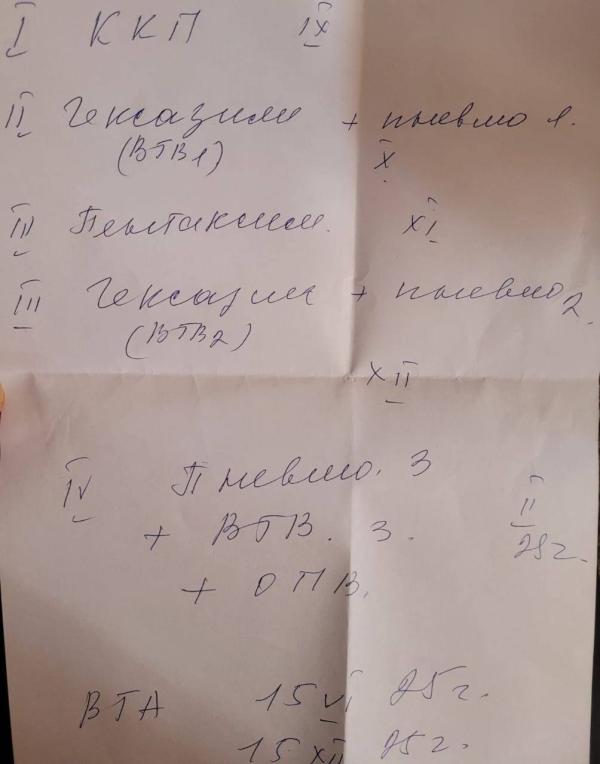 I ККП IX
II Гексазим + пневмо 1.
(ВГВ1) X
III Пентаксим. XI
III Гексазим + пневмо 2.
(ВГВ2)
XII
IV Пневмо. 3
+ ВГВ. 3. II
+ ОПВ. 25г.
ВГА 15 VI 25г.
15 XII 25г.